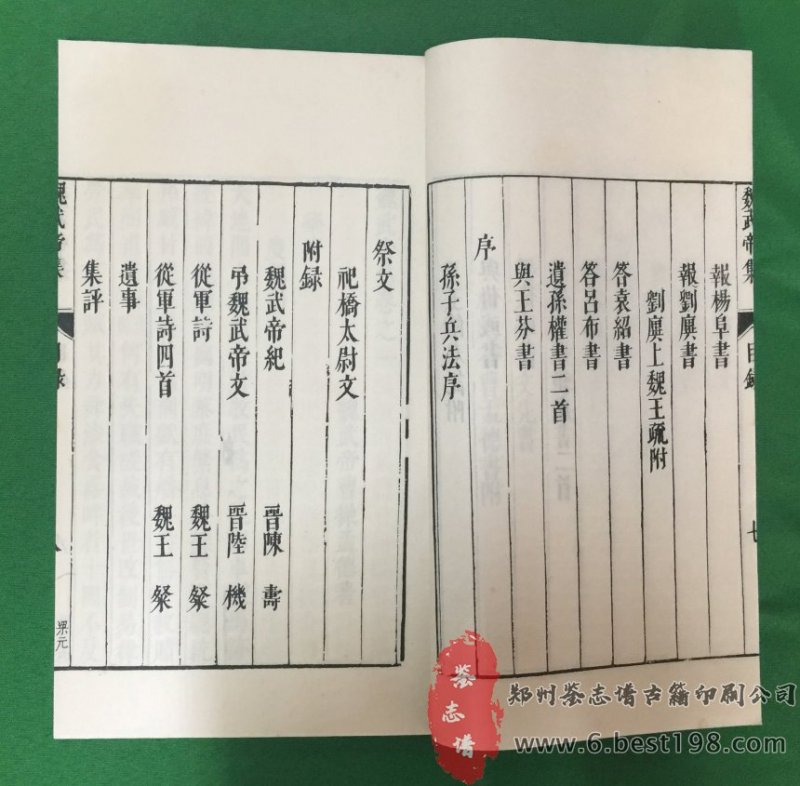 魏武帝集
目錄
七
報楊阜書
報劉廙書
劉廙上魏王疏附
答袁紹書
答呂布書
遺孫權書二首
與王芬書
序
孫子兵法序
祭文
祀橋太尉文
附録
魏武帝紀 晉陳壽
弔魏武帝文 晉陸機
從軍詩 魏王粲
從軍詩四首 魏王粲
遺事
集評
魏武帝集
目錄
八
鉴志谱
郑州鉴志谱古籍印刷公司
www.6.best198.com